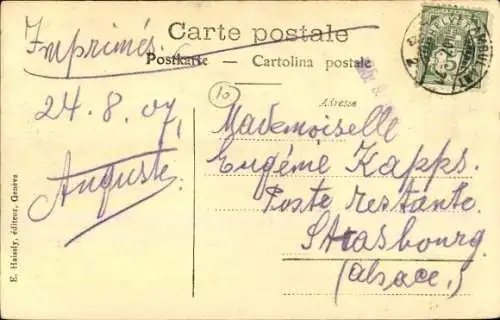 Carte postale
Postkarte – Cartolina postale
Imprimés.
Adresse
10
24.8.07
Auguste.
Mademoiselle
Eugénie Kapps.
Poste restante.
Strasbourg
(Alsace.)
E. Haissly, éditeur, Genève
5